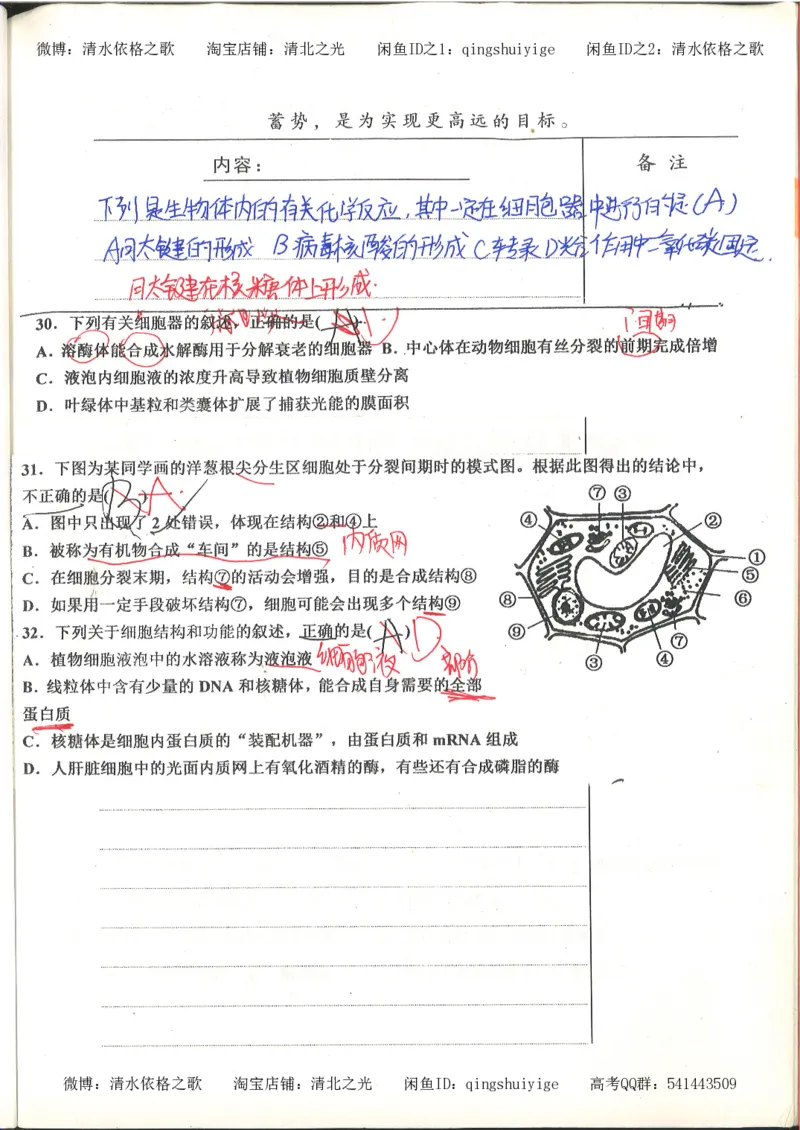 微博：清水依格之歌 淘宝店铺：清北之光 闲鱼ID之1：qingshuiyige 闲鱼ID之2：清水依格之歌
蓄势，是为实现更高远的目标。
内容： 备 注
下列是生物体内的有关化学反应，其中一定在细胞器中进行的是（A）
A肽键的形成 B病毒核酸的形成 C转录 D光合作用中二氧化碳固定.
肽键在核糖体上形成.
30．下列有关细胞器的叙述，正确的是( )
间期
A．溶酶体能合成水解酶用于分解衰老的细胞器 B．中心体在动物细胞有丝分裂的前期完成倍增
C．液泡内细胞液的浓度升高导致植物细胞质壁分离
D．叶绿体中基粒和类囊体扩展了捕获光能的膜面积
31．下图为某同学画的洋葱根尖分生区细胞处于分裂间期时的模式图。根据此图得出的结论中，
不正确的是( ) A
A．图中只出现了 2 处错误，体现在结构②和④上
B．被称为有机物合成“车间”的是结构⑤ 内质网
C．在细胞分裂末期，结构⑦的活动会增强，目的是合成结构⑧
D．如果用一定手段破坏结构⑦，细胞可能会出现多个结构⑨
⑦ ③
④ ②
①
⑤
⑧ ⑥
⑨
⑦
③ ④
32．下列关于细胞结构和功能的叙述，正确的是(A) D
A．植物细胞液泡中的水溶液称为液泡液 细胞液 部分
B．线粒体中含有少量的 DNA 和核糖体，能合成自身需要的全部
蛋白质
C．核糖体是细胞内蛋白质的“装配机器”，由蛋白质和 mRNA 组成
D．人肝脏细胞中的光面内质网上有氧化酒精的酶，有些还有合成磷脂的酶
微博：清水依格之歌 淘宝店铺：清北之光 闲鱼ID：qingshuiyige 高考QQ群：541443509